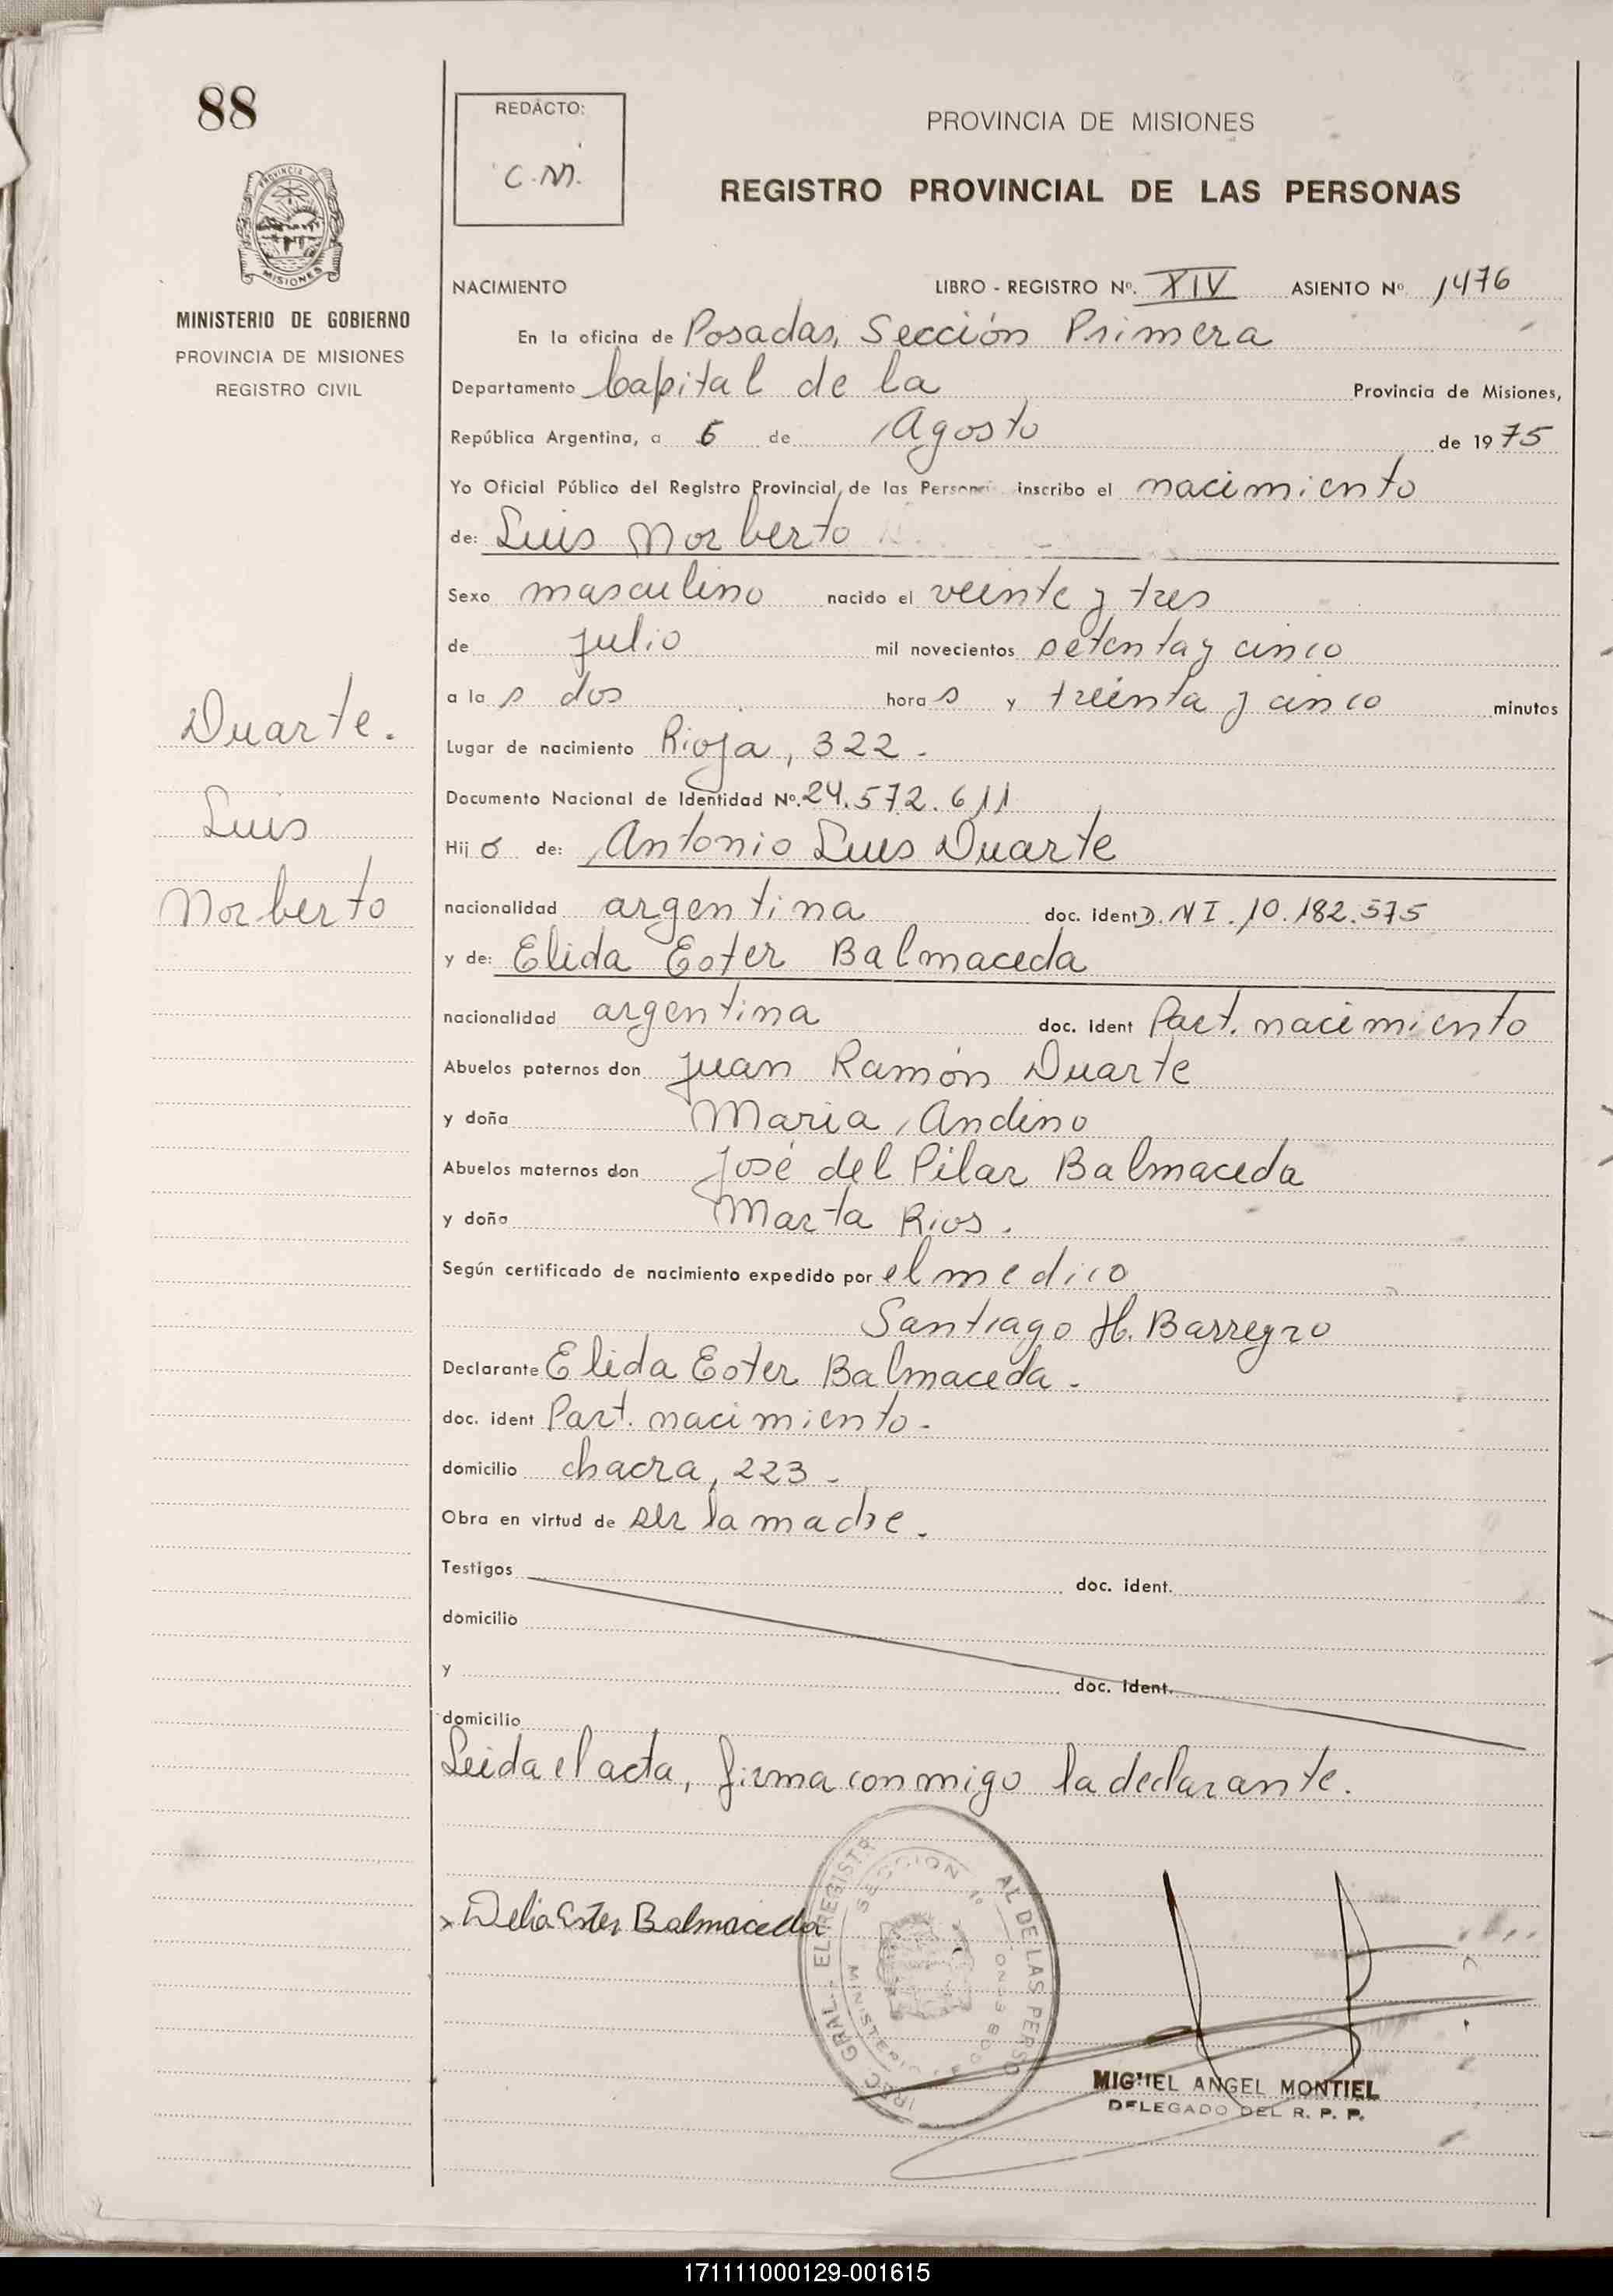 88
REDÁCTO:
C.M.
PROVINCIA DE MISIONES
REGISTRO PROVINCIAL DE LAS PERSONAS
PROVINCIA DE
MISIONES
MINISTERIO DE GOBIERNO
PROVINCIA DE MISIONES
REGISTRO CIVIL
NACIMIENTO LIBRO - REGISTRO Nº. XIV ASIENTO Nº 1476
En la oficina de Posadas, Sección Primera
Departamento Capital de la Provincia de Misiones,
República Argentina, a 5 de Agosto de 1975
Yo Oficial Público del Registro Provincial de las Person inscribo el nacimiento
de: Luis Norberto
Sexo masculino nacido el veinte y tres
de julio mil novecientos setenta y cinco
a la s dos hora s y treinta y cinco minutos
Lugar de nacimiento Rioja, 322.-
Documento Nacional de Identidad Nº. 24.572.611
Hij o de: Antonio Luis Duarte
nacionalidad argentina doc. ident D.N I. 10.182.575
y de: Elida Ester Balmaceda
nacionalidad argentina doc. ident Part. nacimiento
Abuelos paternos don Juan Ramón Duarte
y doña Maria Andino
Abuelos maternos don José del Pilar Balmaceda
y doña Marta Rios.
Según certificado de nacimiento expedido por el medico
Santiago H. Barreyro
Declarante Elida Ester Balmaceda.-
doc. ident Part. nacimiento.-
domicilio chacra, 223.-
Obra en virtud de ser la madre.
Testigos doc. ident.
domicilio
y doc. ident.
domicilio
Leida el acta, firma conmigo la declarante.
Duarte.
Luis
Norberto
x Delia Ester Balmaceda
REC. GRAL. EL REGISTR AL DE LAS PERSO
SECCION 1º
MINIST GOBIERNO
MIGUEL ANGEL MONTIEL
DELEGADO DEL R. P. P.
171111000129-001615